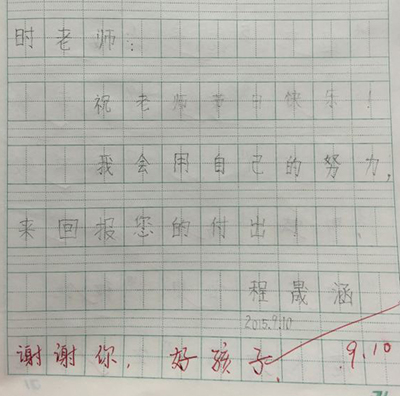 时老师：
祝老师节日快乐！
我会用自己的努力，
来回报您的付出！
程晟涵
2015.9.10
谢谢你，好孩子。 9.10